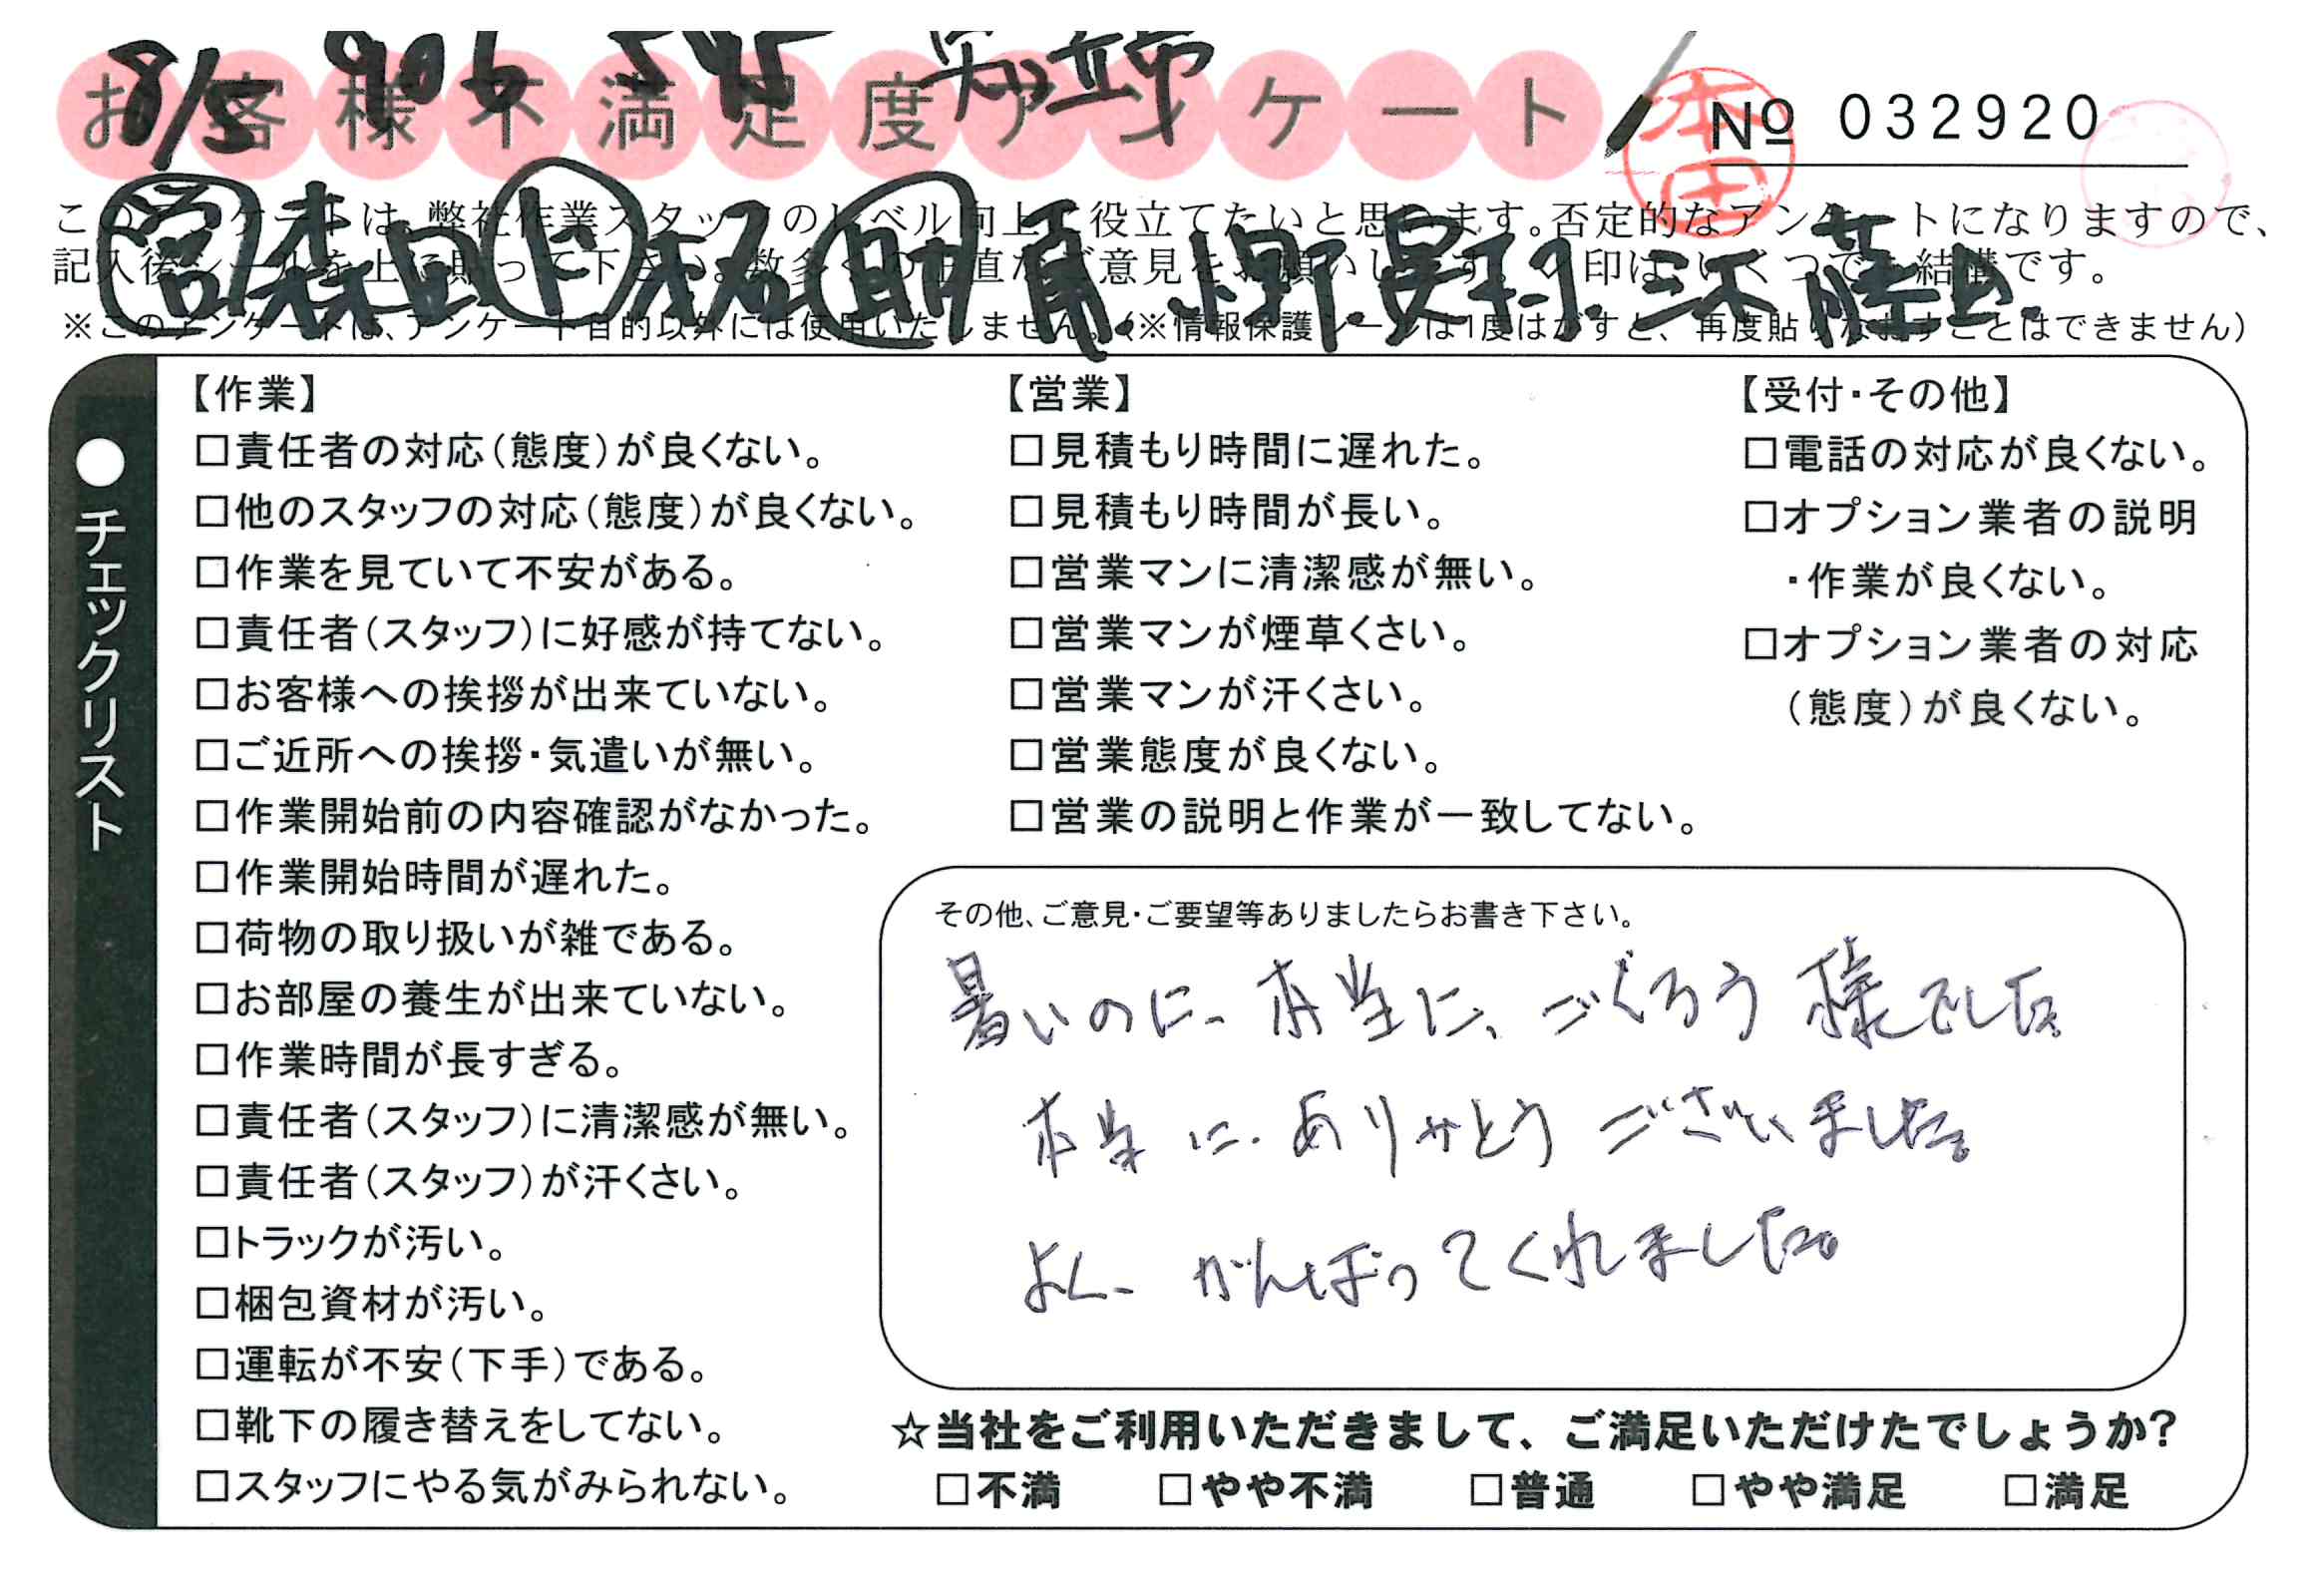 8/5 906 545 知立市
お客様不満足度アンケート
本田
№ 032920
このアンケートは、弊社作業スタッフのレベル向上に役立てたいと思います。否定的なアンケートになりますので、
記入後シールを上に貼って下さい。数多くの正直なご意見をお願いします。レ印は、いくつでも結構です。
営 森田 ド 拓 助 小野. 奥村.
※このアンケートは、アンケート目的以外には使用いたしません。(※情報保護シールは1度はがすと、再度貼りなおすことはできません)
●チェックリスト
【作業】
□責任者の対応(態度)が良くない。
□他のスタッフの対応(態度)が良くない。
□作業を見ていて不安がある。
□責任者(スタッフ)に好感が持てない。
□お客様への挨拶が出来ていない。
□ご近所への挨拶・気遣いが無い。
□作業開始前の内容確認がなかった。
□作業開始時間が遅れた。
□荷物の取り扱いが雑である。
□お部屋の養生が出来ていない。
□作業時間が長すぎる。
□責任者(スタッフ)に清潔感が無い。
□責任者(スタッフ)が汗くさい。
□トラックが汚い。
□梱包資材が汚い。
□運転が不安(下手)である。
□靴下の履き替えをしてない。
□スタッフにやる気がみられない。
【営業】
□見積もり時間に遅れた。
□見積もり時間が長い。
□営業マンに清潔感が無い。
□営業マンが煙草くさい。
□営業マンが汗くさい。
□営業態度が良くない。
□営業の説明と作業が一致してない。
【受付・その他】
□電話の対応が良くない。
□オプション業者の説明
・作業が良くない。
□オプション業者の対応
(態度)が良くない。
その他、ご意見・ご要望等ありましたらお書き下さい。
暑いのに、本当に、ごくろう様でした。
本当に、ありがとうございました。
よく、がんばってくれました。
☆当社をご利用いただきまして、ご満足いただけたでしょうか?
□不満 □やや不満 □普通 □やや満足 □満足